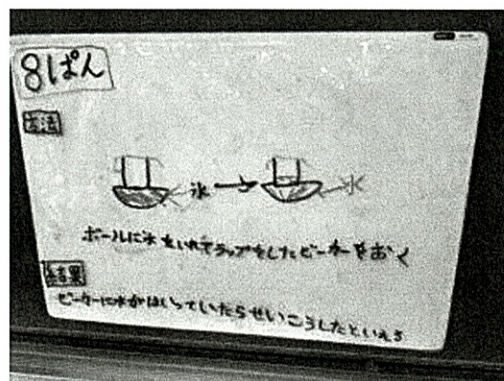 8ぱん
方法
氷 → 水
ボールに氷をいれてラップをしたビーカーをおく
結果
ビーカーに水がはいっていたらせいこうしたといえる